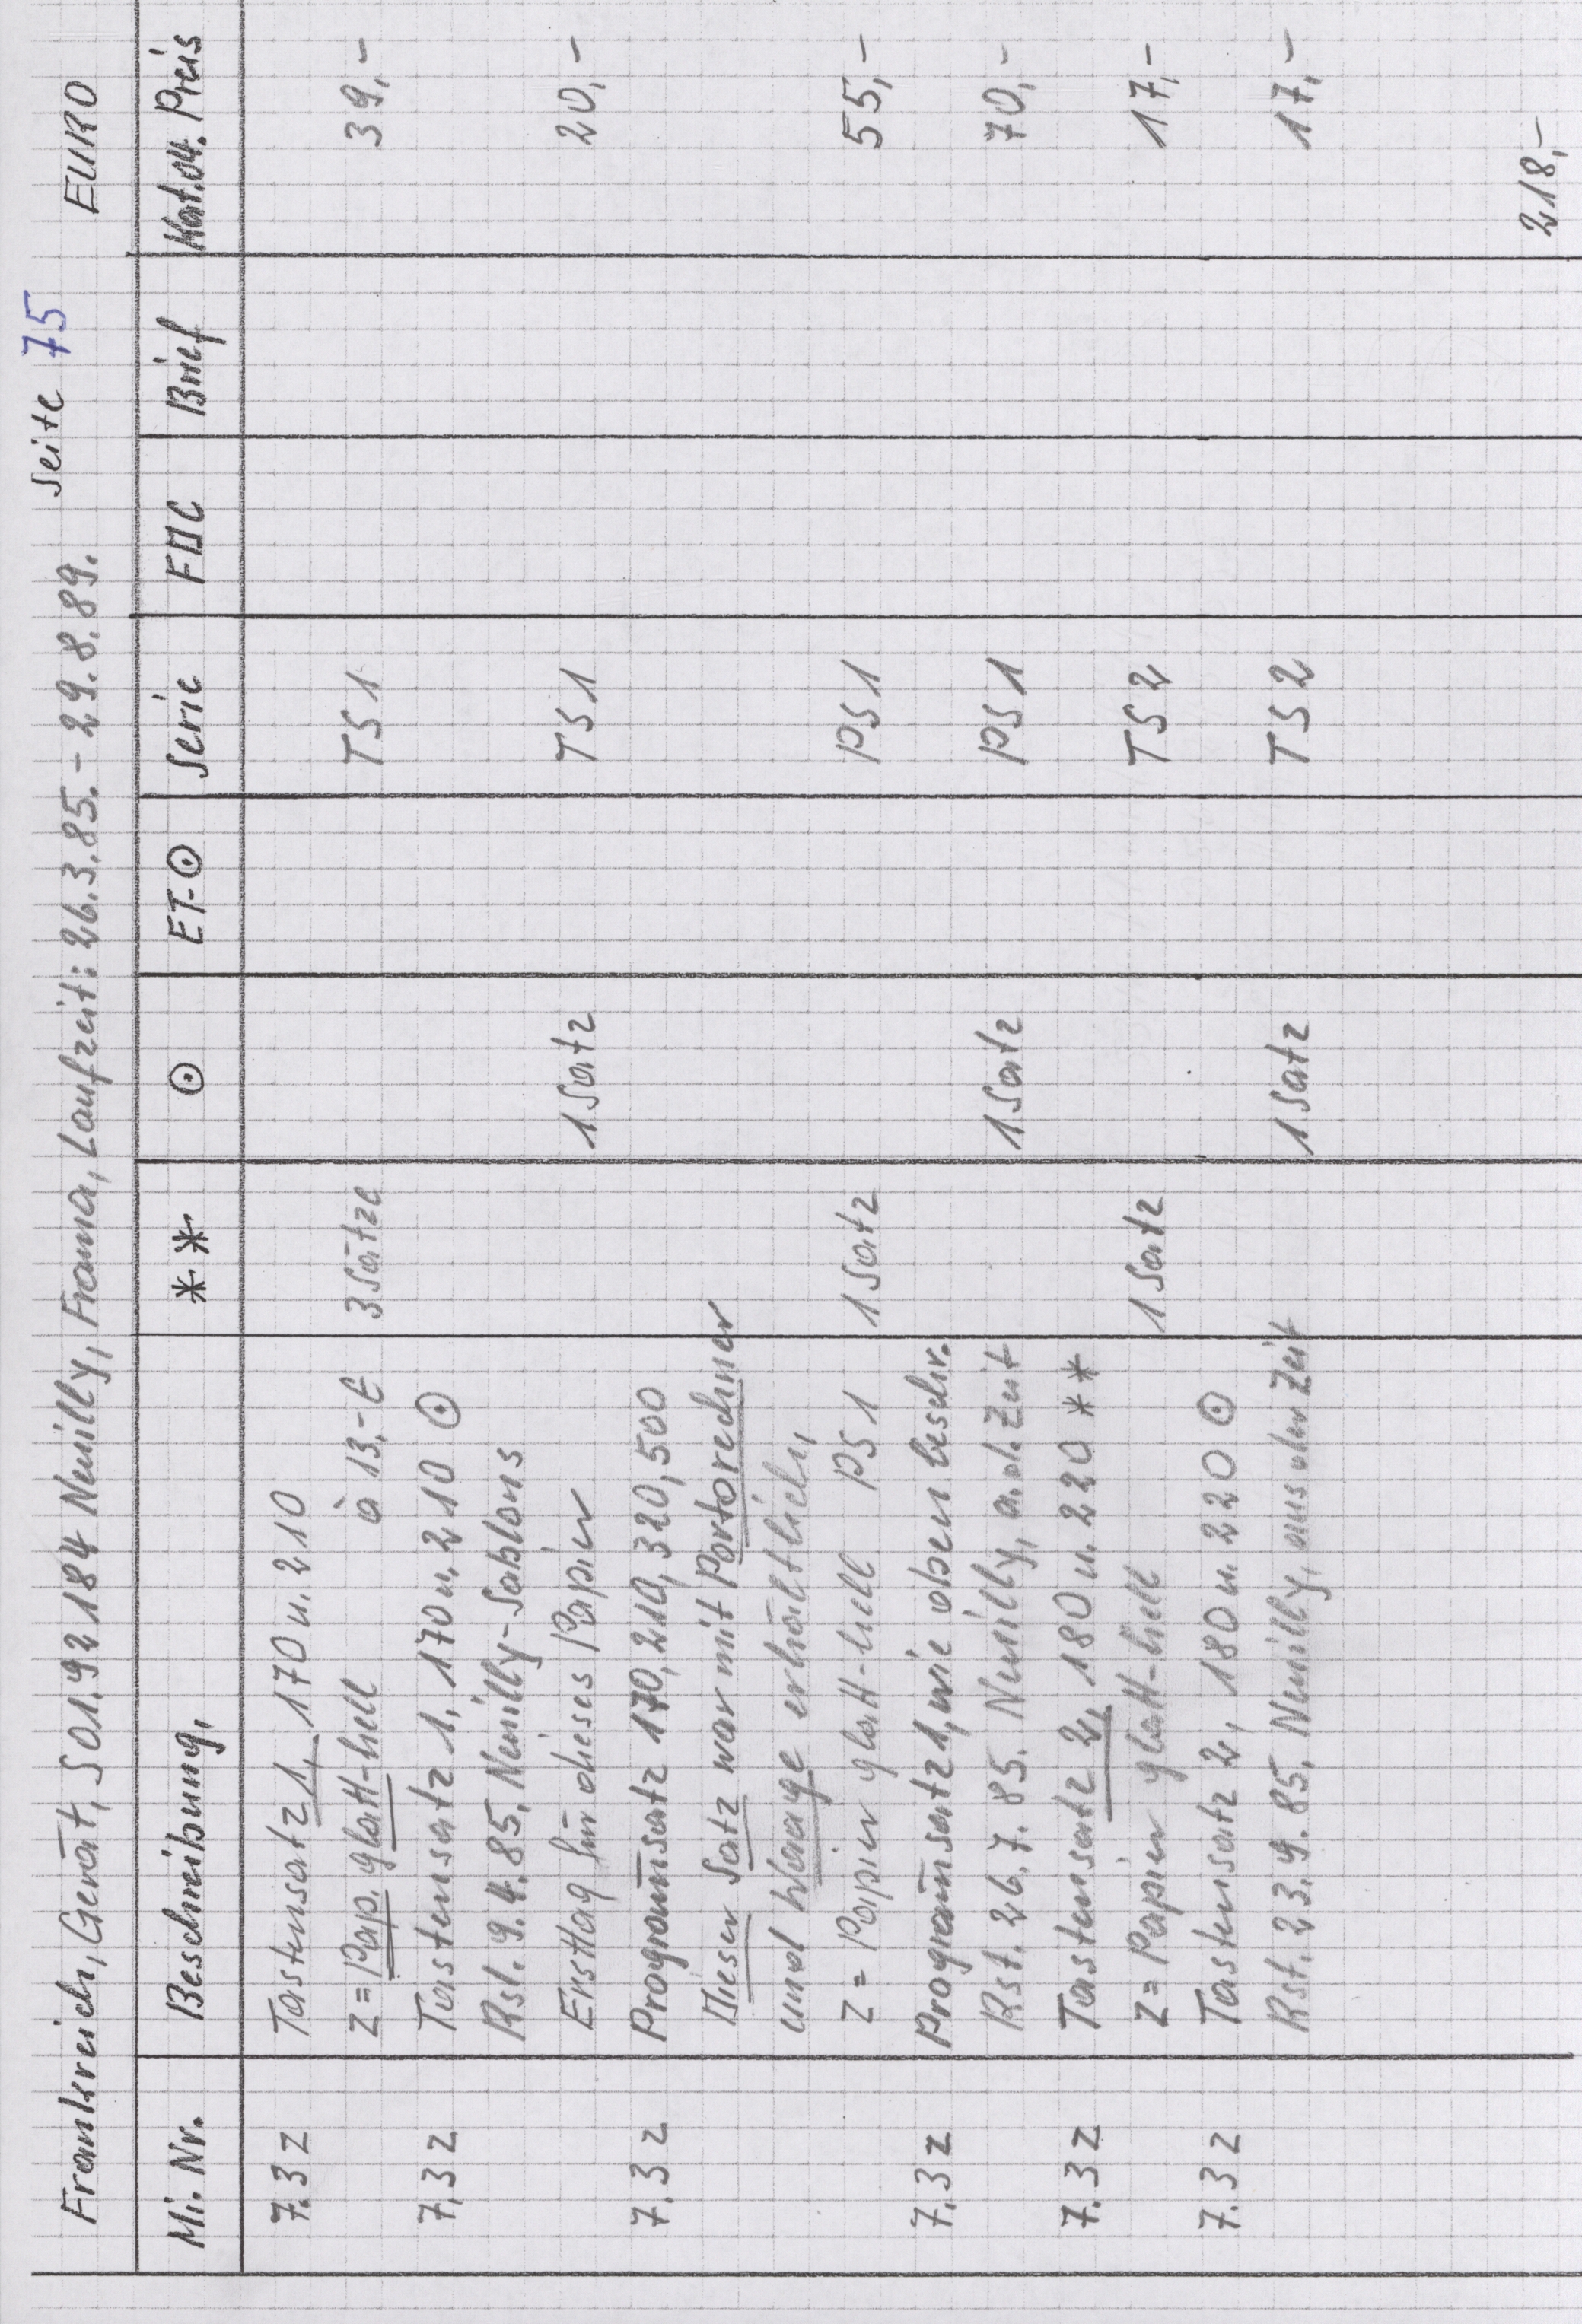 Seite 75
Frankreich, Gerät, S01.92184 Neuilly, Frama, Laufzeit: 26.3.85.-29.8.89. EURO
Mi.Nr. Beschreibung, ** ⊙ ET-⊙ Serie FDC Brief Kat.04. Preis
7.3 z Tastensatz 1, 170 u. 210
z = Pap. glatt-hell à 13,-€ 3 Sätze TS 1 39,-
7.3 z Tastensatz 1, 170 u. 210 ⊙
Rst. 9.4.85, Neuilly-Sablons
Ersttag für dieses Papier 1 Satz TS 1 20,-
7.3 z Programsatz 170, 210, 320, 500
Dieser Satz war mit Portorechner
und Waage erhältlich,
z = Papier glatt-hell PS 1 1 Satz PS 1 55,-
7.3 z Programsatz 1, wie oben beschr.
Rst. 26.7.85. Neuilly, a.d. Zeit 1 Satz PS 1 70,-
7.3 z Tastensatz 2, 180 u. 220 **
z = Papier glatt-hell 1 Satz TS 2 17,-
7.3 z Tastensatz 2, 180 u. 220 ⊙
Rst. 23.9.85, Neuilly, aus der Zeit 1 Satz TS 2 17,-
218,-